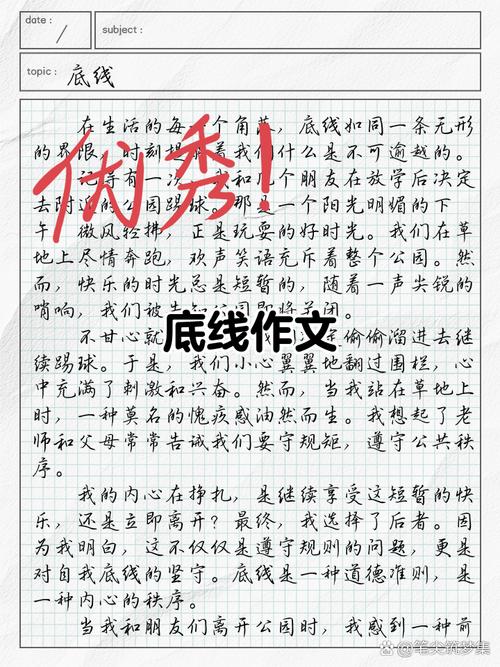 date:
/
subject:
topic: 底线
在生活的每一个角落,底线如同一条无形
的界限,时刻提醒着我们什么是不可逾越的。
记得有一次,我和几个朋友在放学后决定
去附近的公园踢球。那是一个阳光明媚的下
午,微风轻拂,正是玩耍的好时光。我们在草
地上尽情奔跑,欢声笑语充斥着整个公园。然
而,快乐的时光总是短暂的,随着一声尖锐的
哨响,我们被告知公园即将关闭。
不甘心就 偷偷溜进去继
续踢球。于是,我们小心翼翼地翻过围栏,心
中充满了刺激和兴奋。然而,当我站在草地上
时,一种莫名的愧疚感油然而生。我想起了老
师和父母常常告诫我们要守规矩,遵守公共秩
序。
我的内心在挣扎,是继续享受这短暂的快
乐,还是立即离开?最终,我选择了后者。因
为我明白,这不仅仅是遵守规则的问题,更是
对自我底线的坚守。底线是一种道德准则,是
一种内心的秩序。
当我和朋友们离开公园时,我感到一种前
优秀!
底线作文
笔尖筑梦集